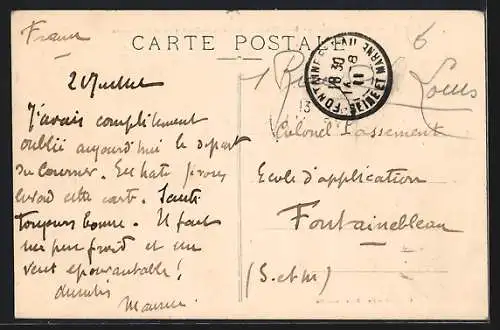 France
CARTE POSTALE
2 Juillet
J'avais complètement
oublié aujourd'hui le départ
du Courrier. En hate je vous
envoie cette carte. Santé
toujours bonne. Il fait
un peu froid et un
vent épouvantable!
Maurice
6
FONTAINEBLEAU
18 30
11
SEINE ET MARNE
13
Louis
Colonel Lassement
Ecole d'application
Fontainebleau
(S. et M)